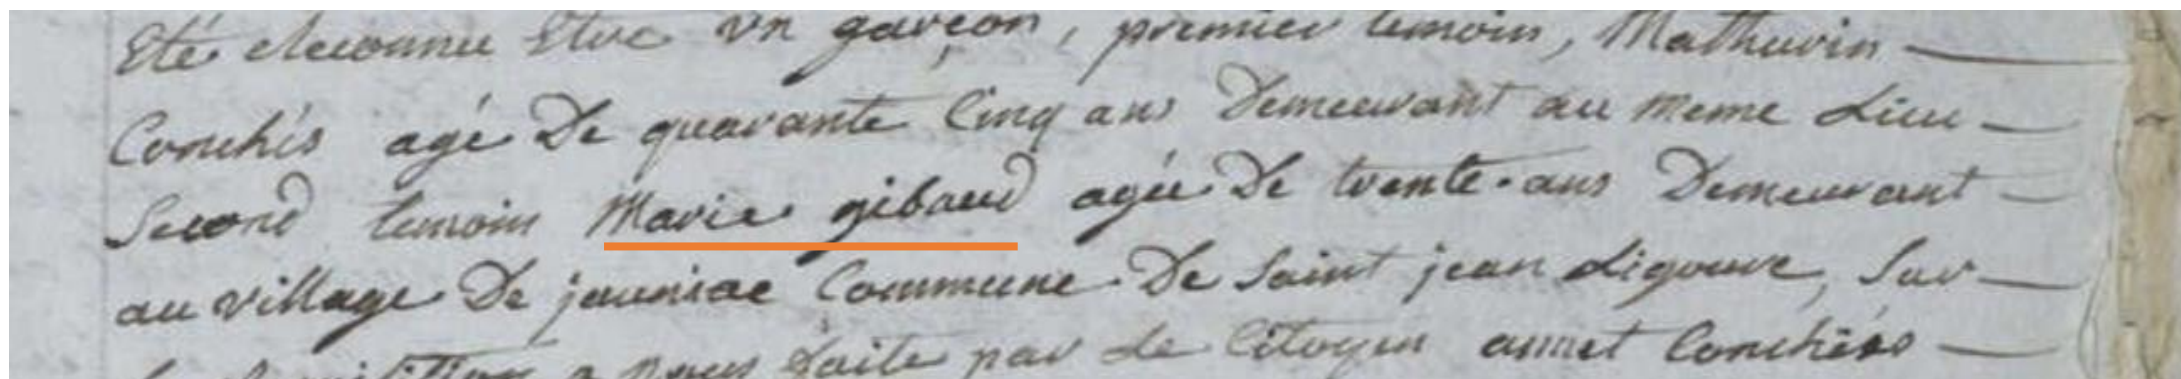 Eté Reconnu Etre un garçon, premier temoin, Mathurin
Conchés agé De quarante Cinq ans Demeurant au meme Lieu
Second temoin Marie gibaud agée De trente ans Demeurant
au village De jauniac Commune De Saint jean Ligoure, Sur
a nous faite par Le Citoyen annet Conchés